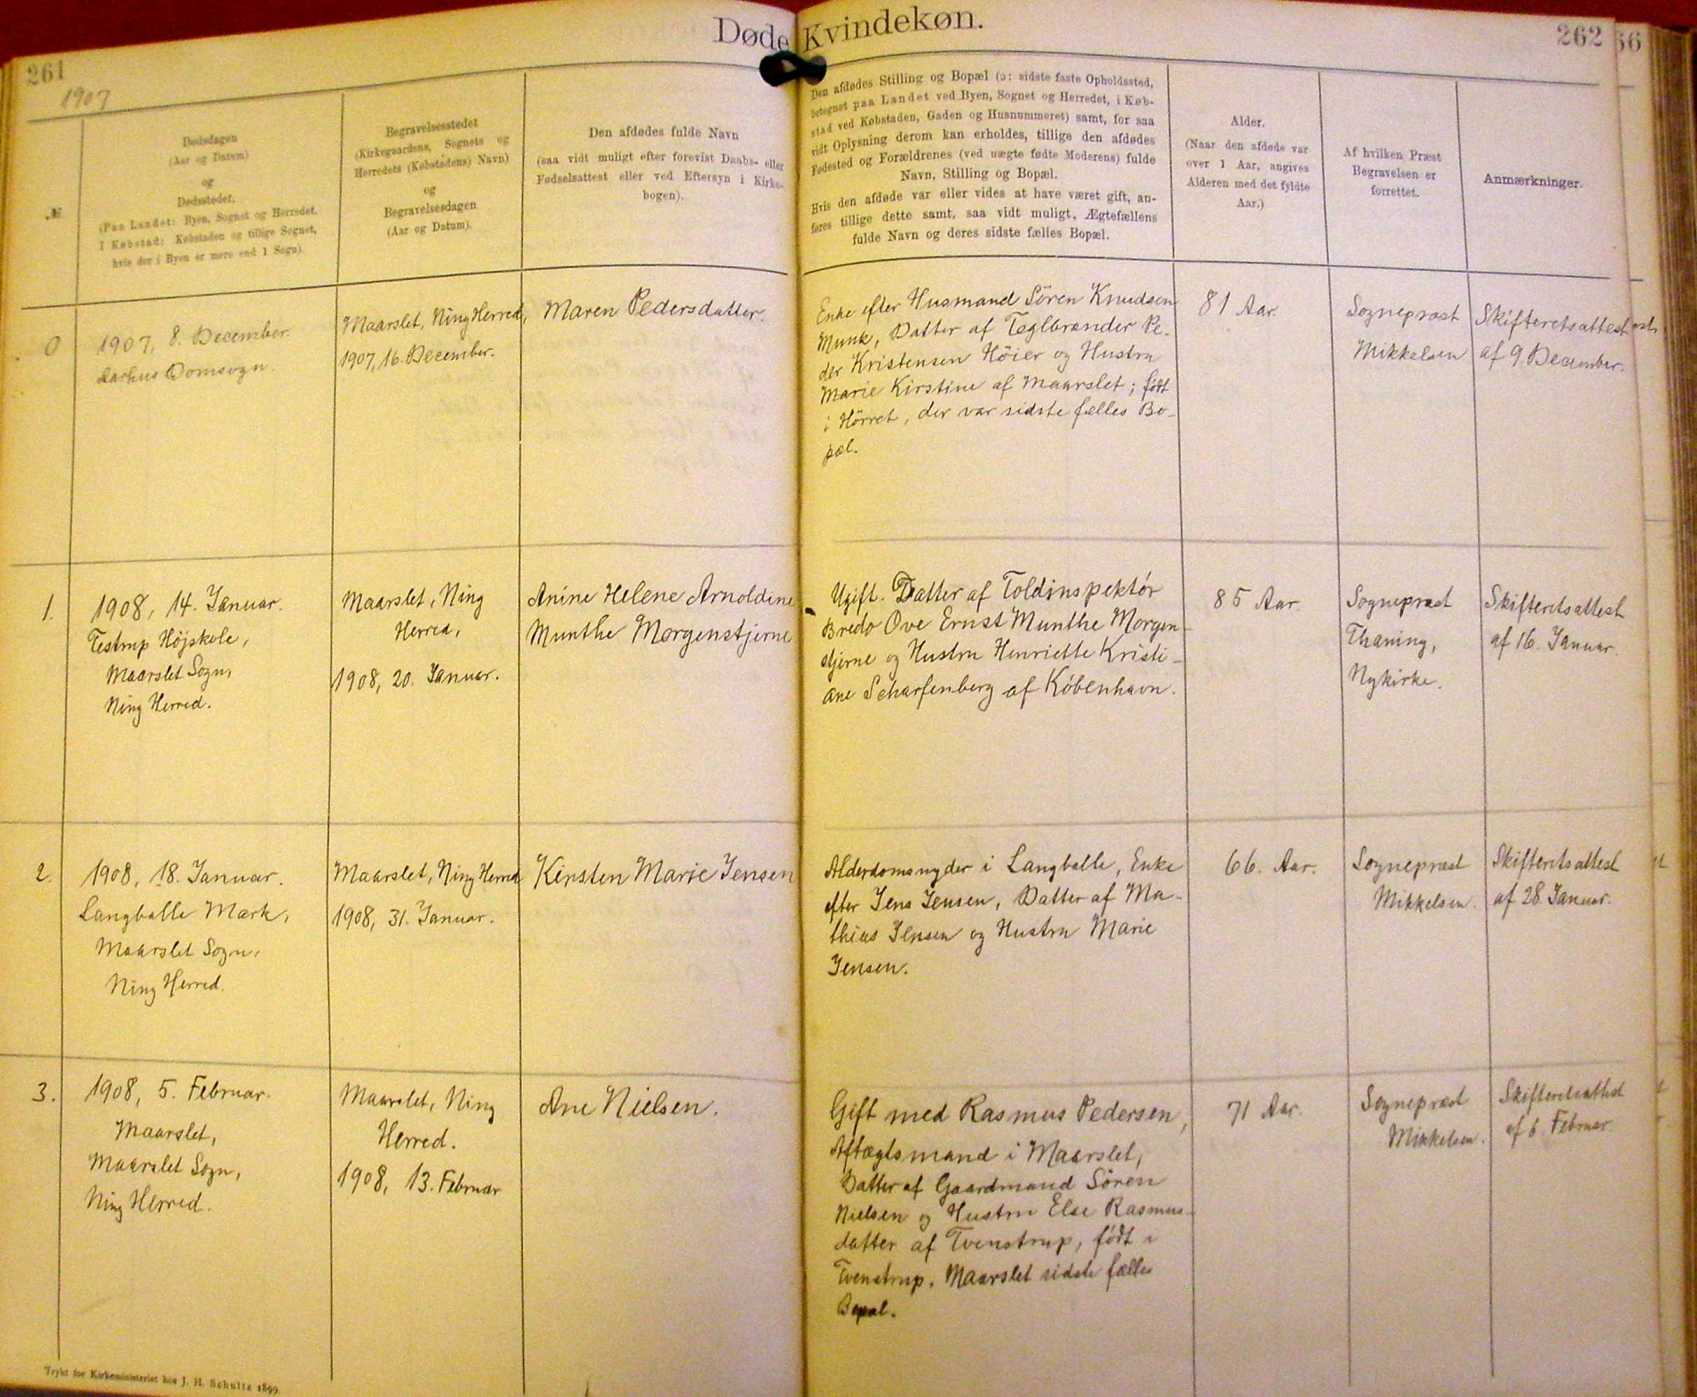 261
1907
Døde Kvindekøn.
262
66
№
Dødsdagen
(Aar og Datum)
og
Dødsstedet.
(Paa Landet: Byen, Sognet og Herredet,
I Købstad: Købstaden og tillige Sognet,
hvis der i Byen er mere end 1 Sogn).
Begravelsesstedet
(Kirkegaardens, Sognets og
Herredets (Købstadens) Navn)
og
Begravelsesdagen
(Aar og Datum).
Den afdødes fulde Navn
(saa vidt muligt efter forevist Daabs- eller
Fødselsattest eller ved Eftersyn i Kirke-
bogen).
Den afdødes Stilling og Bopæl (ɔ: sidste faste Opholdssted,
betegnet paa Landet ved Byen, Sognet og Herredet, i Køb-
stad ved Købstaden, Gaden og Husnummeret) samt, for saa
vidt Oplysning derom kan erholdes, tillige den afdødes
Fødested og Forældrenes (ved uægte fødte Moderens) fulde
Navn, Stilling og Bopæl.
Hvis den afdøde var eller vides at have været gift, an-
føres tillige dette samt, saa vidt muligt, Ægtefællens
fulde Navn og deres sidste fælles Bopæl.
Alder.
(Naar den afdøde var
over 1 Aar, angives
Alderen med det fyldte
Aar.)
Af hvilken Præst
Begravelsen er
forrettet.
Anmærkninger.
0
1907, 8. December.
Aarhus Domsogn.
Maarslet, Ning Herred,
1907, 16. December.
Maren Pedersdatter.
Enke efter Husmand Sören Knudsen
Munk, Datter af Teglbrænder Pe-
der Kristensen Höier og Hustru
Marie Kirstine af Maarslet; født
i Hörret, der var sidste fælles Bo-
pæl.
81 Aar.
Sognepræst
Mikkelsen
Skifteretsattest
af 9. December.
1.
1908, 14. Januar.
Testrup Højskole,
Maarslet Sogn,
Ning Herred.
Maarslet, Ning
Herred,
1908, 20. Januar.
Anine Helene Arnoldine
Munthe Morgenstjerne
Ugift. Datter af Toldinspektör
Bredo Ove Ernst Munthe Morgen-
stjerne og Hustru Henriette Kristi-
ane Scharfenberg af København.
85 Aar.
Sognepræst
Thaning,
Nykirke.
Skifteretsattest
af 16. Januar.
2.
1908, 18. Januar.
Langballe Mark,
Maarslet Sogn,
Ning Herred.
Maarslet, Ning Herred
1908, 31. Januar.
Kirsten Marie Jensen
Alderdomsnyder i Langballe, Enke
efter Jens Jensen, Datter af Ma-
thias Jensen og Hustru Marie
Jensen.
66. Aar.
Sognepræst
Mikkelsen.
Skifteretsattest
af 28. Januar.
3.
1908, 5. Februar.
Maarslet,
Maarslet Sogn,
Ning Herred.
Maarslet, Ning
Herred.
1908, 13. Februar
Ane Nielsen.
Gift med Rasmus Pedersen,
Aftægtsmand i Maarslet,
Datter af Gaardmand Sören
Nielsen og Hustru Else Rasmus-
datter af Tvenstrup, født i
Tvenstrup. Maarslet sidste fælles
Bopæl.
71 Aar.
Sognepræst
Mikkelsen.
Skifteretsattest
af 6. Februar.
Trykt for Kirkeministeriet hos J. H. Schultz 1899.